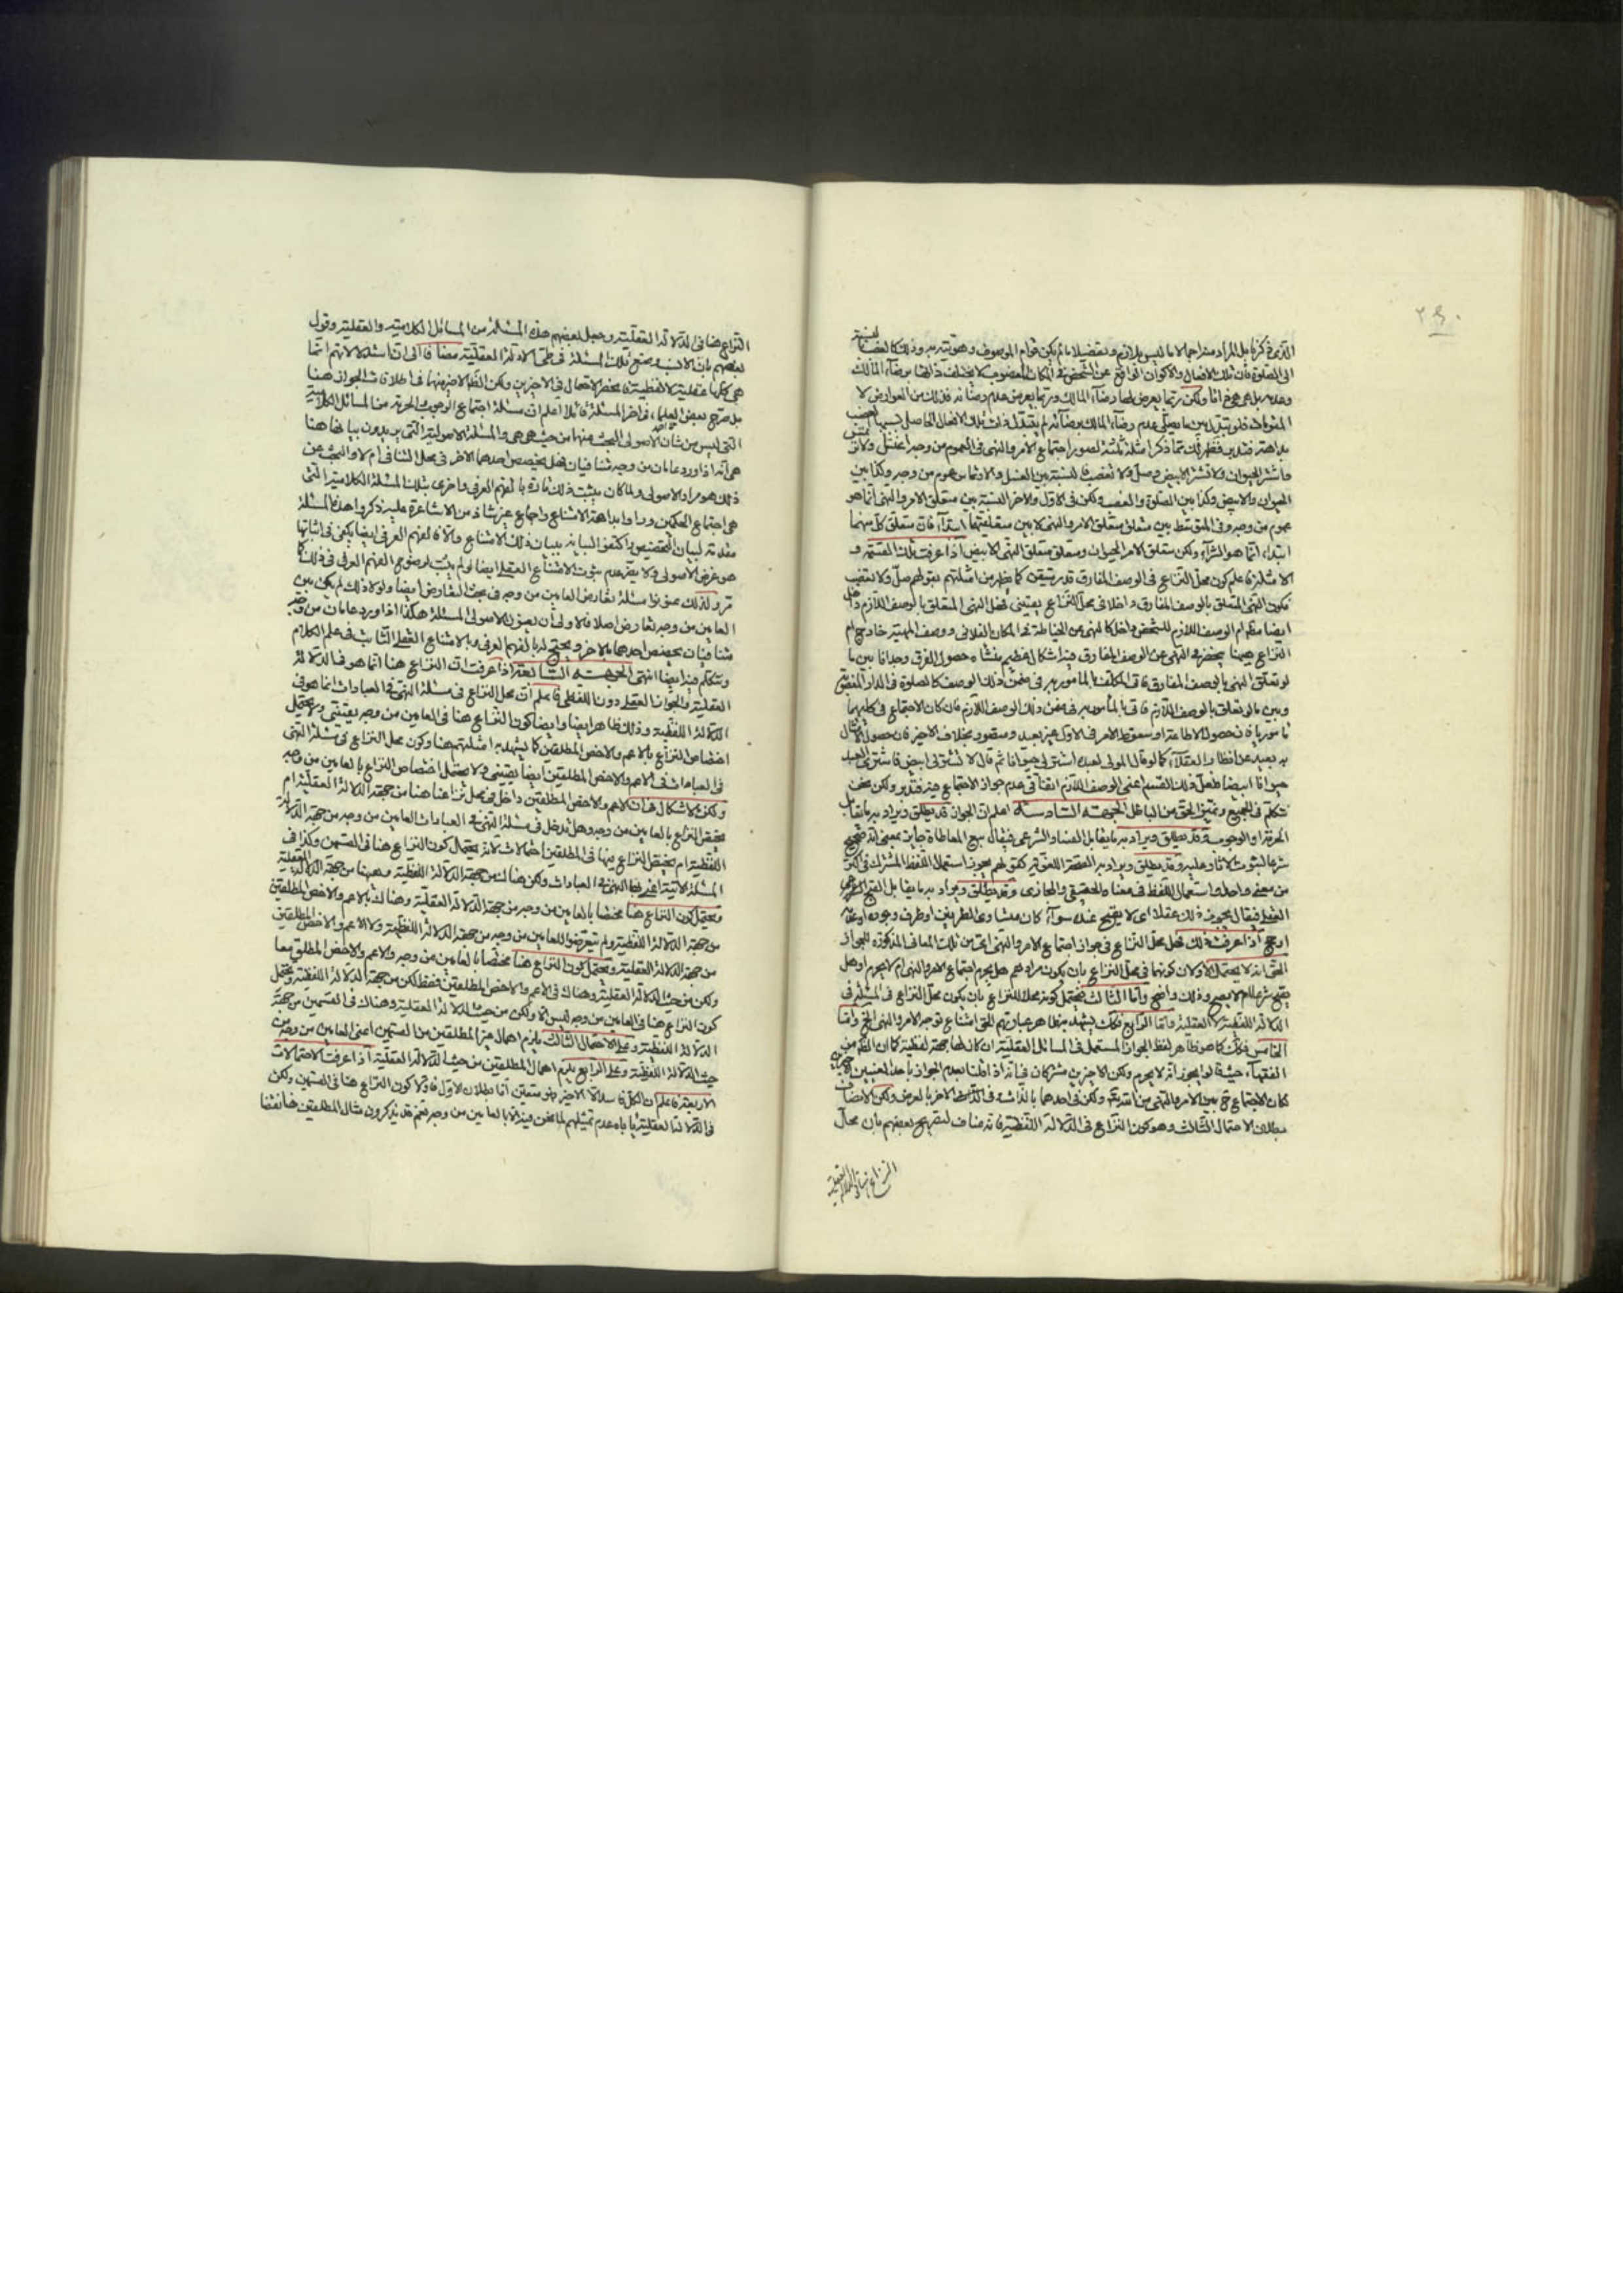 ٢٤٠
الذى ذكرنا بل المراد منه اجمالا ما ليس بلازم وتفصيلا ما لم يكن قوام الموصوف وهويته به وذلك كالغصب بالنسبة
الى الصلوة فان تلك الافعال والاكوان الواقع عن الشخص فى المكان المغصوب لا يختلف ذاتها برضاء المالك
وعدمه بل هى هى ذاتا ولكن ربما يعرض لها رضاء المالك وربما يعرض عدم رضائه فذلك من العوارض لا
المنوعات فلو تبدل عدم رضاء المالك برضائه لم يتبدل ذات تلك الافعال
فظهر لك مما ذكر امثلة ثلثة لصور اجتماع الامر والنهى فى العموم من وجه
الحيوان والابيض وكذا بين الصلوة والغصب ولكن فى الاول والاخر النسبة بين متعلق الامر والنهى انما هو
عموم من وجه وفى المتوسط بين متعلق متعلق الامر والنهى لا بين متعلقيهما ابتداء فان متعلق كل منهما
ابتداء انما هو الشراء ولكن متعلق متعلق الامر الحيوان ومتعلق متعلق النهى الابيض اذا عرفت تلك المقدمة و
الامثلة فاعلم كون محل النزاع فى الوصف المفارق قدر متيقن كما يظهر من امثلتهم بقولهم صل ولا تغصب
فكون النهى المتعلق بالوصف المفارق داخلا فى محل النزاع يقينى فهل النهى المتعلق بالوصف اللازم داخل
ايضا ام الوصف اللازم للشخص داخل كالنهى عن الخياطة فى المكان الفلانى ووصف المهية خارج ام
النزاع هيهنا ينحصر فى النهى عن الوصف المفارق فيه اشكال عظيم منشأه حصول الفرق وجدانا بين ما
لو تعلق النهى بالوصف المفارق فاتى المكلف بالمامور به فى ضمن ذلك الوصف كالصلوة فى الدار المغصوبة
وبين ما لو تعلق بالوصف اللازم فاتى بالمامور به فى ضمن ذلك الوصف اللازم فان كان الاجتماع فى كليهما
مأموريا فان حصول الاطاعة او سقوط الامر فى الاول غير بعيد ومتصور بخلاف الاخير فان حصول الامتثال
به بعيد عن انظار العقلاء كما لو قال المولى لعبده اشتر لى حيوانا ثم قال لا تشتر لى ابيض فاشترى العبد
حيوانا ابيضا فلعل ذلك القسم اعنى الوصف اللازم اتفاقى عدم جواز الاجتماع فيه فتدبر ولكن نحن
نتكلم فى الجميع ونميز الحق من الباطل الجهة السادسة اعلم ان الجواز قد يطلق ويراد به ما يقابل
الحرمة او الوجوب وقد يطلق ويراد به ما يقابل الفساد الشرعى فيقال بيع المعاطاة جايز بمعنى انه صحيح
شرعا لثبوت الاثار عليه وقد يطلق ويراد به الصحة اللغوية كقولهم يجوز استعمال اللفظ المشترك فى اكثر
من معنى واحد واستعمال اللفظ فى معناه الحقيقى والمجازى وقد يطلق ويراد به ما يقابل القبح
العقلى فيقال يجوز ذلك عقلا اى لا يقبح عنده سواء كان متساوى الطرفين او طرف وجوده او عدمه
ارجح اذا عرفت ذلك فهل محل النزاع فى جواز اجتماع الامر والنهى اى من تلك المعانى المذكورة للجواز
الحق انه لا يحتمل الاولان كونهما فى محل النزاع بان يكون مرادهم هل يحرم اجتماع الامر والنهى ام لا يحرم او هل
يصح شرعا ام لا يصح وذلك واضح واما الثالث فيحتمل كونه محلا للنزاع بان يكون محل النزاع فى المسئلة فى
الدلالة اللفظية لا العقلية واما الرابع فكك يشهد به ظاهر عباراتهم الحق امتناع توجه الامر والنهى الخ واما
الخامس فكك كما هو ظاهر لفظ الجواز المستعمل فى المسائل العقلية ان كان لها جهة لفظية كما ان الظ من
الفقهاء حيث قالوا يجوز انه لا يحرم ولكن الاخيرين مشتركان فى انه اذا قلنا بعدم الجواز باحد المعنيين الاخيرين
كان الاجتماع ح بين الامر والنهى من الشرع ولكن فى احدهما بالذات وفى الاخر بالعرض ولكن الانصاف
بطلان الاحتمال الثالث وهو كون النزاع فى الدلالة اللفظية فانه مناف لتصريح بعضهم بان محل
النزاع هنا فى الدلالة العقلية
النزاع هنا فى الدلالة العقلية وجعل بعضهم هذه المسئلة من المسائل الكلامية والعقلية وقول
بعضهم بان الانسب وضع تلك المسئلة فى طى الادلة العقلية مضافا الى ان استدلالاتهم انما
هى كلها عقلية لا لفظية فانحصر الاحتمال فى الاخيرين ولكن الظ الاخير منهما فى اطلاقات الجواز هنا
بل صرح بعض العلماء فى اخر المسئلة قائلا اعلم ان مسئلة اجتماع الوجوب والحرمة من المسائل الكلامية
التى ليس من شأن الاصولى البحث عنها من حيث هى هى والمسئلة الاصولية التى يريدون بيانها هنا
هى انه اذا ورد عامان من وجه متنافيان فهل يخصص احدهما الاخر فى محل التنافى ام لا والبحث عن
ذلك هو مراد الاصولى ولما كان يثبت ذلك تارة بالفهم العرفى واخرى بتلك المسئلة الكلامية التى
هى اجتماع الحكمين وراوا بداهة الامتناع واجماع غير شاذ من الاشاعرة عليه ذكروا هذه المسئلة
مقدمة لبيان التخصيص واكتفى البيانه ببيان ذلك الامتناع والا فالفهم العرفى ايضا يكفى فى اثباتها
هو غرض الاصولى ولا يضر عدم ثبوت الامتناع العقلى ايضا لو لم يثبت لوضوح الفهم العرفى فى ذلك كما
مر ولذلك عنونوا مسئلة تعارض العامين من وجه فى بحث التعارض ايضا ولولا ذلك لم يكن بين
العامين من وجه تعارض اصلا فالاولى ان يعنون الاصولى المسئلة هكذا اذا ورد عامان من وجه
متنافيان يخصص احدهما بالاخر ويحتج له بالفهم العرفى وبالامتناع العقلى الثابت فى علم الكلام
ونتكلم فيه ايضا انتهى الجهة السابعة اذا عرفت ان النزاع هنا انما هو فى الدلالة
العقلية والجواز العقلى دون اللفظى فاعلم ان محل النزاع فى مسئلة النهى فى العبادات انما هو فى
الدلالة اللفظية وذلك ظاهر ايضا وايضا كون النزاع هنا فى العامين من وجه يقينى ولا يحتمل
اختصاص النزاع بالاعم والاخص المطلقين كما يشهد به امثلتهم هنا وكون محل النزاع فى مسئلة النهى
فى العبادات فى الاعم والاخص المطلقين ايضا يقينى ولا يحتمل اختصاص النزاع بالعامين من وجه
ولكن الاشكال فى ان الاعم والاخص المطلقين داخل فى محل نزاعنا هنا من جهة الدلالة العقلية ام
يختص النزاع بالعامين من وجه وهل تدخل فى مسئلة النهى فى العبادات العامين من وجه من جهة الدلالة
اللفظية ام يختص النزاع بها فى المطلقين احتمالات لانه يحتمل كون النزاع هنا فى القسمين وكذا فى
المسئلة الاتية اعنى النهى فى العبادات ولكن هناك من جهة الدلالة اللفظية وهيهنا من جهة الدلالة العقلية
ويحتمل كون النزاع هنا مختصا بالعامين من وجه من جهة الدلالة العقلية وهناك بالاعم والاخص المطلقين
من جهة الدلالة اللفظية ولم يتعرضوا للعامين من وجه من جهة الدلالة اللفظية ولا الاعم والاخص المطلقين
من جهة الدلالة العقلية ويحتمل كون النزاع هنا مختصا بالعامين من وجه والاعم والاخص المطلق معا
ولكن من حيث الدلالة العقلية وهناك فى الاعم والاخص المطلقين فقط لكن من جهة الدلالة اللفظية ويحتمل
كون النزاع هنا فى العامين من وجه ليس الا ولكن من حيث الدلالة العقلية وهناك فى القسمين من جهة
الدلالة اللفظية وعلى الاحتمال الثالث يلزم اهمال غير المطلقين من القسمين اعنى العامين من وجه من
حيث الدلالة اللفظية وعلى الرابع يلزم اهمال المطلقين من حيث الدلالة العقلية اذا عرفت الاحتمالات
الاربعة فاعلم ان الكل فاسد الا الاخير فهو متعين اما بطلان الاول فاولا كون النزاع هنا فى القسمين ولكن
فى الدلالة العقلية يأباه عدم تمثيلهم لما نحن فيه الا بالعامين من وجه نعم قد يذكرون مثال المطلقين